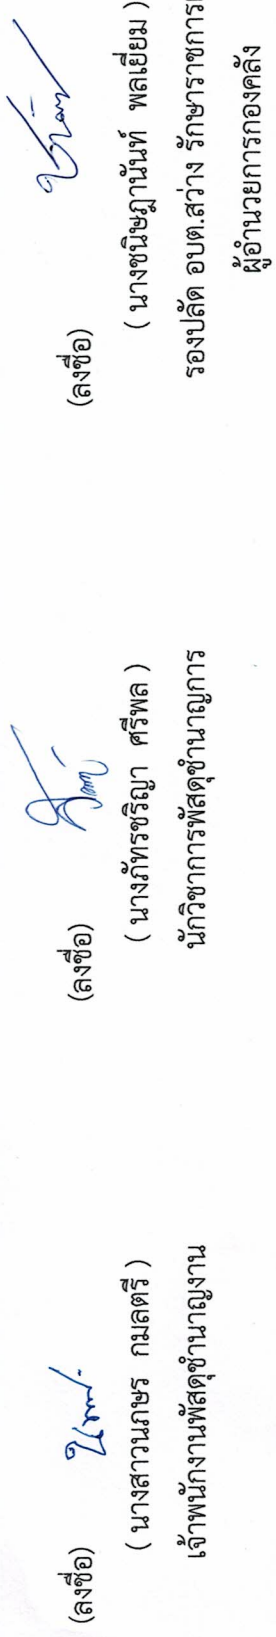 (ลงชื่อ)
( นางสาวนภษร กมลตรี )
เจ้าพนักงานพัสดุชำนาญงาน
(ลงชื่อ)
( นางภัทรชริญา ศรีพล )
นักวิชาการพัสดุชำนาญการ
(ลงชื่อ)
( นางชนิษฎานันท์ พลเยี่ยม )
รองปลัด อบต.สว่าง รักษาราชการแ
ผู้อำนวยการกองคลัง